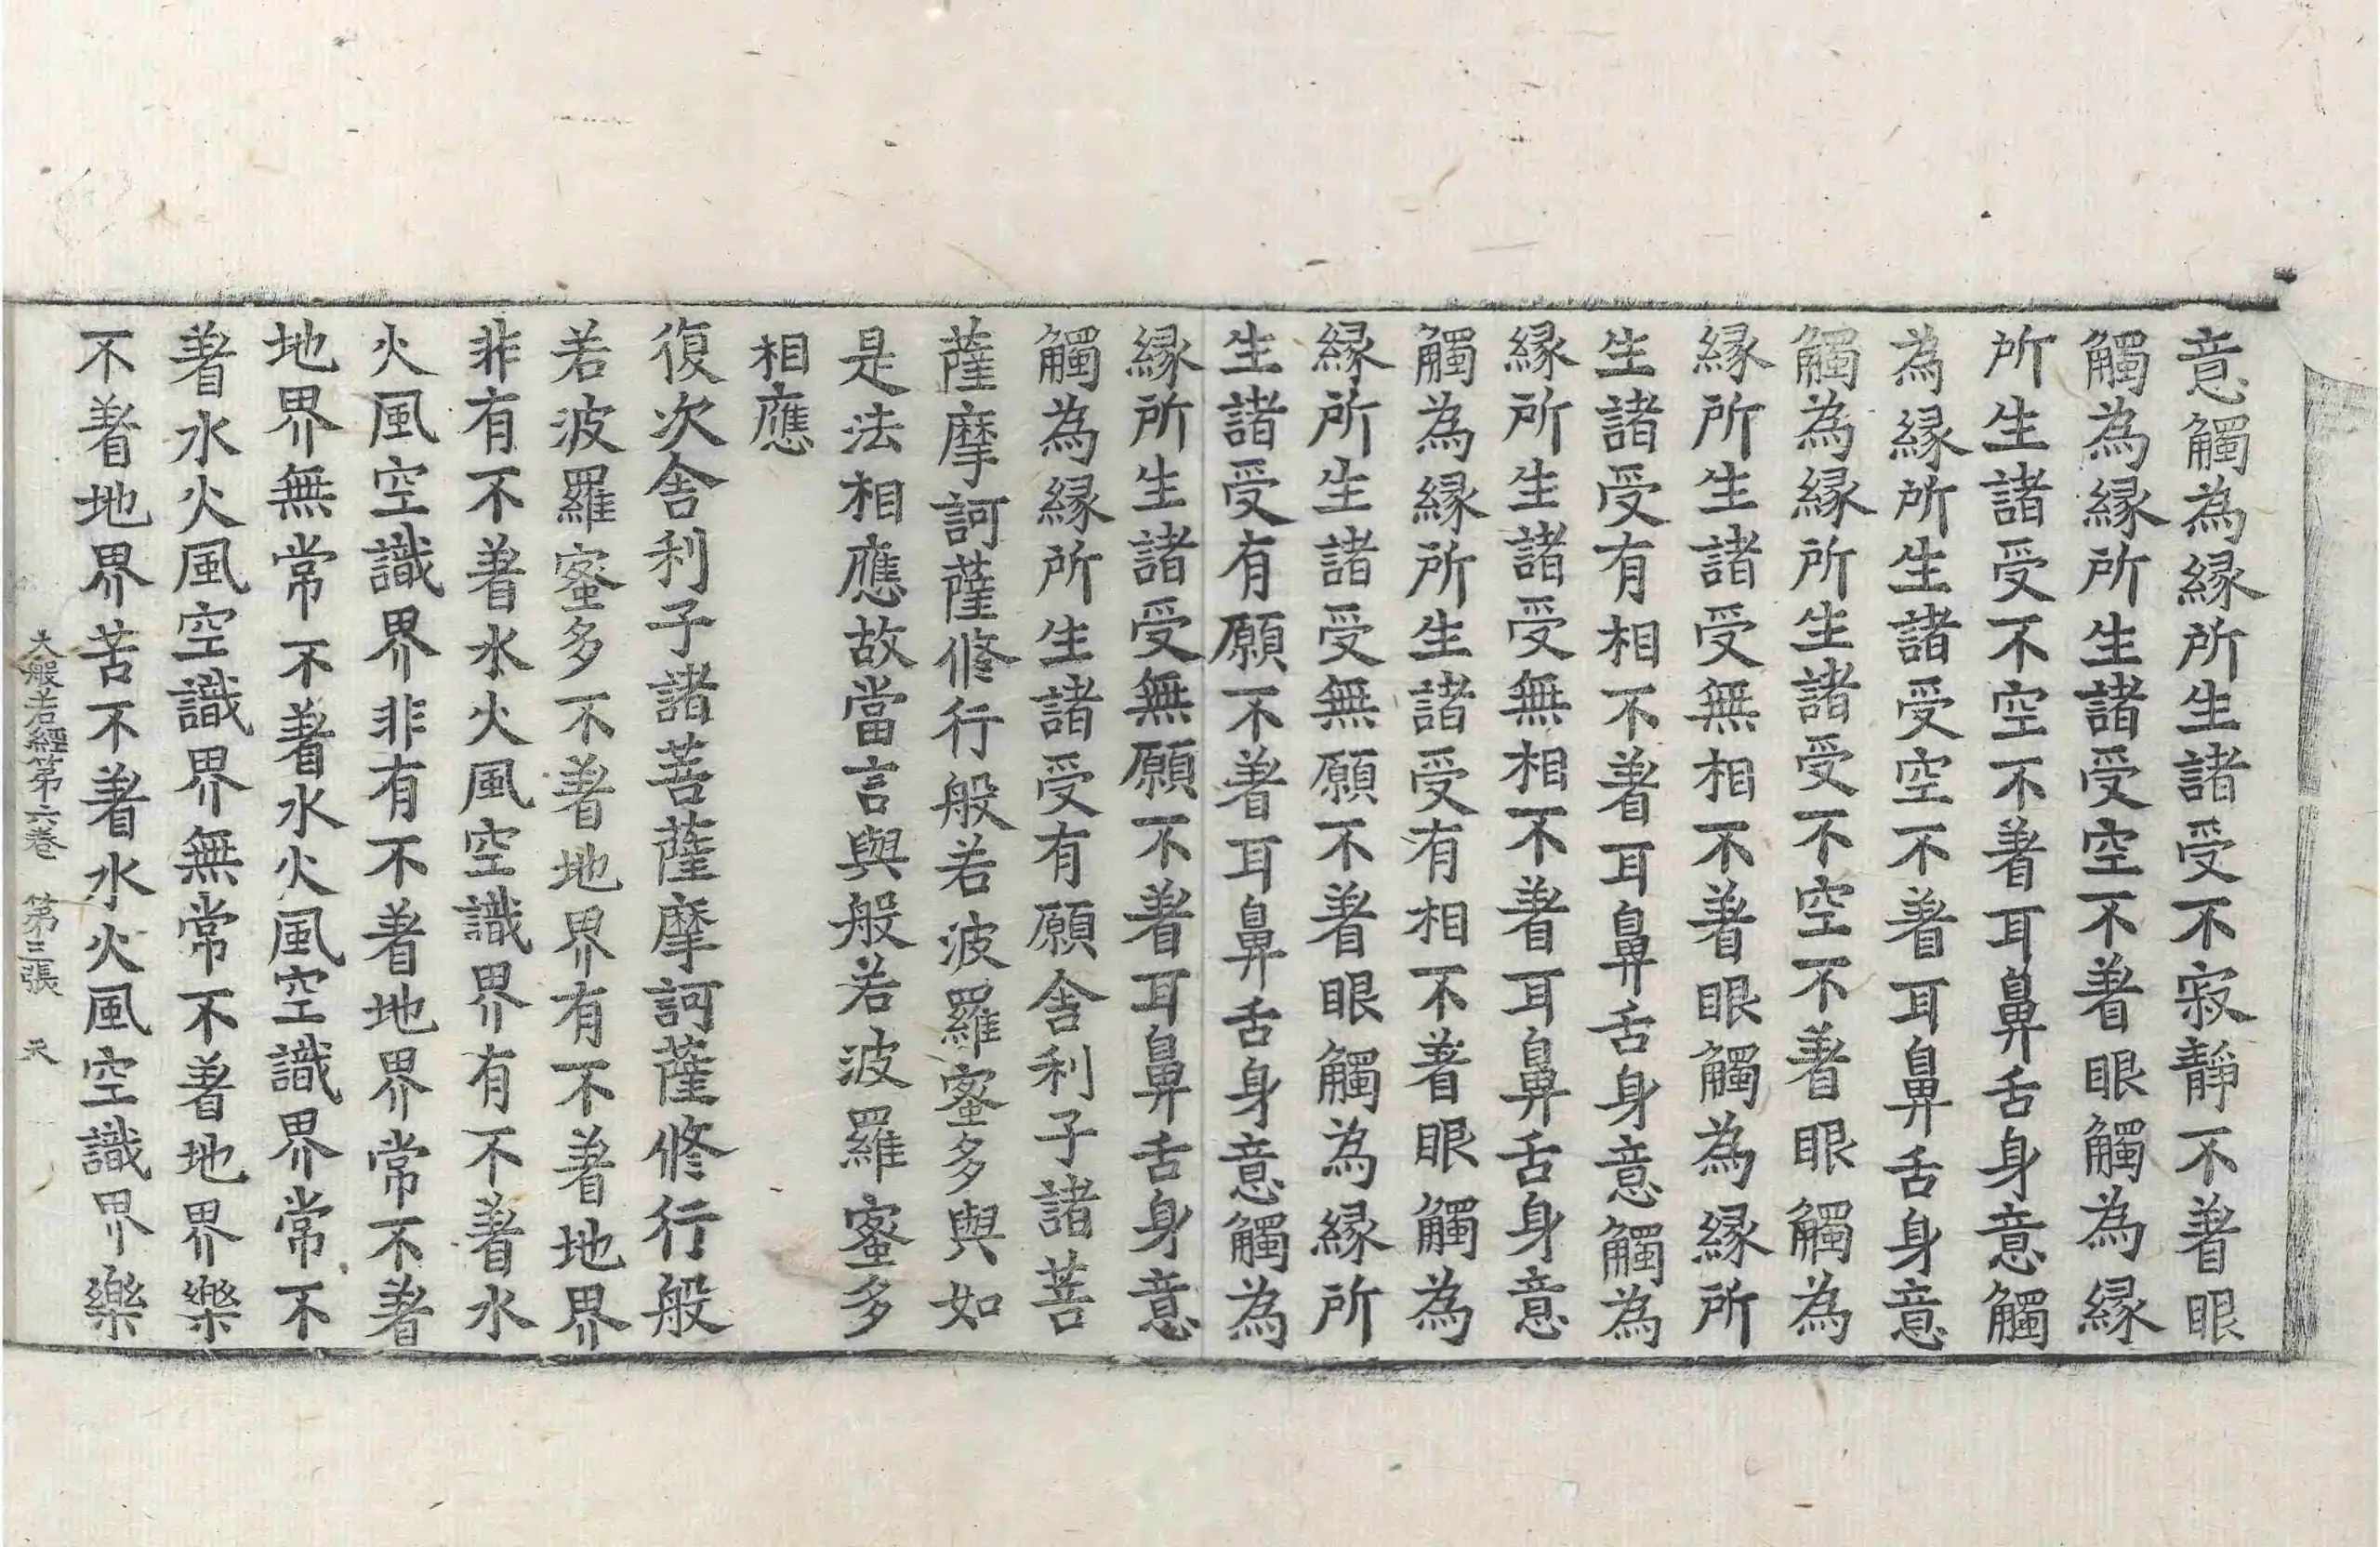 意觸為縁所生諸受不寂靜不著眼
觸為縁所生諸受空不著眼觸為縁
所生諸受不空不著耳鼻舌身意觸
為縁所生諸受空不著耳鼻舌身意
觸為縁所生諸受不空不著眼觸為
縁所生諸受無相不著眼觸為縁所
生諸受有相不著耳鼻舌身意觸為
縁所生諸受無相不著耳鼻舌身意
觸為縁所生諸受有相不著眼觸為
縁所生諸受無願不著眼觸為縁所
生諸受有願不著耳鼻舌身意觸為
縁所生諸受無願不著耳鼻舌身意
觸為縁所生諸受有願舍利子諸菩
薩摩訶薩修行般若波羅蜜多與如
是法相應故當言與般若波羅蜜多
相應
復次舍利子諸菩薩摩訶薩修行般
若波羅蜜多不著地界有不著地界
非有不著水火風空識界有不著水
火風空識界非有不著地界常不著
地界無常不著水火風空識界常不
著水火風空識界無常不著地界樂
不著地界苦不著水火風空識界樂
大般若經第六卷 第三張 天